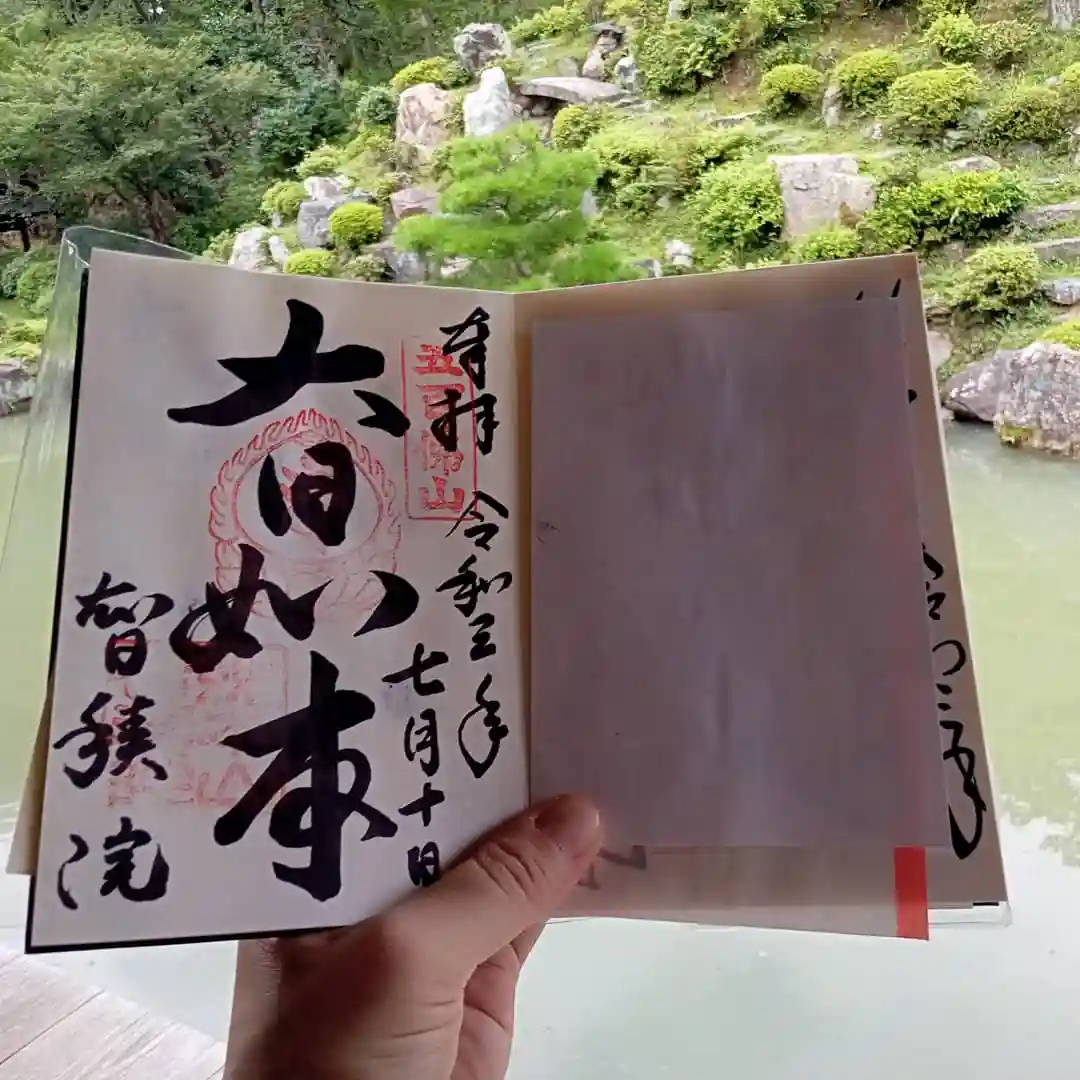 奉拝
五百佛山
令和三年
七月十日
大日如来
智積院